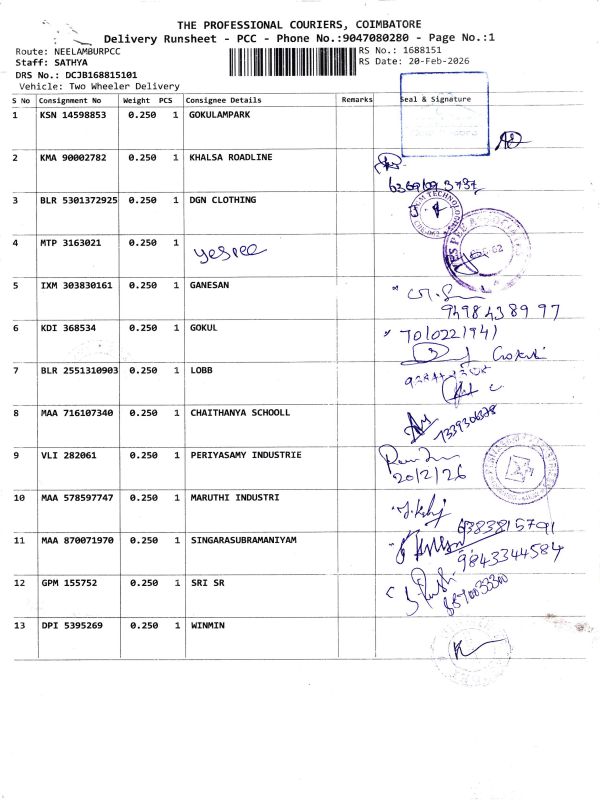 THE PROFESSIONAL COURIERS, COIMBATORE
Delivery Runsheet - PCC - Phone No.:9047080280 - Page No.:1
Route: NEELAMBURPCC
RS No.: 1688151
Staff: SATHYA
RS Date: 20-Feb-2026
DRS No.: DCJB168815101
Vehicle: Two Wheeler Delivery
S No Consignment No Weight PCS Consignee Details Remarks Seal & Signature
1 KSN 14598853 0.250 1 GOKULAMPARK
2 KMA 90002782 0.250 1 KHALSA ROADLINE
3 BLR 5301372925 0.250 1 DGN CLOTHING
4 MTP 3163021 0.250 1 yespee
5 IXM 303830161 0.250 1 GANESAN
9498438997
6 KDI 368534 0.250 1 GOKUL
7010221941
7 BLR 2551310903 0.250 1 LOBB
8 MAA 716107340 0.250 1 CHAITHANYA SCHOOLL
9 VLI 282061 0.250 1 PERIYASAMY INDUSTRIE
20/2/26
10 MAA 578597747 0.250 1 MARUTHI INDUSTRI
6383815791
11 MAA 870071970 0.250 1 SINGARASUBRAMANIYAM
9843344584
12 GPM 155752 0.250 1 SRI SR
13 DPI 5395269 0.250 1 WINMIN